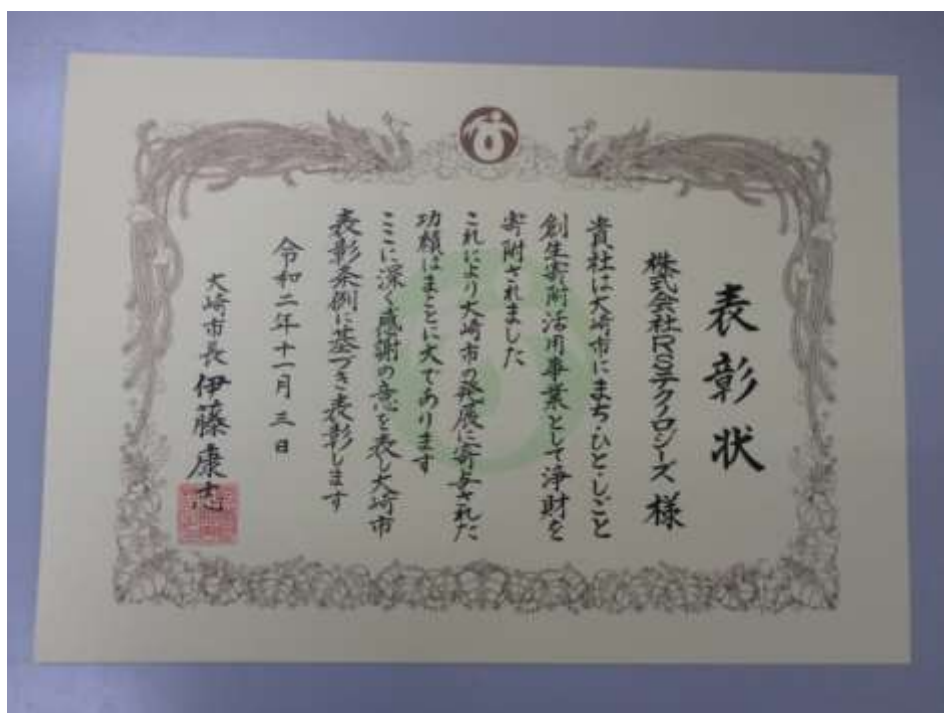 表彰状
株式会社RSテクノロジーズ 様
貴社は大崎市にまち・ひと・しごと
創生寄附活用事業として浄財を
寄附されました
これにより大崎市の発展に寄与された
功績はまことに大であります
ここに深く感謝の意を表し大崎市
表彰条例に基づき表彰します
令和二年十一月三日
大崎市長 伊藤康志